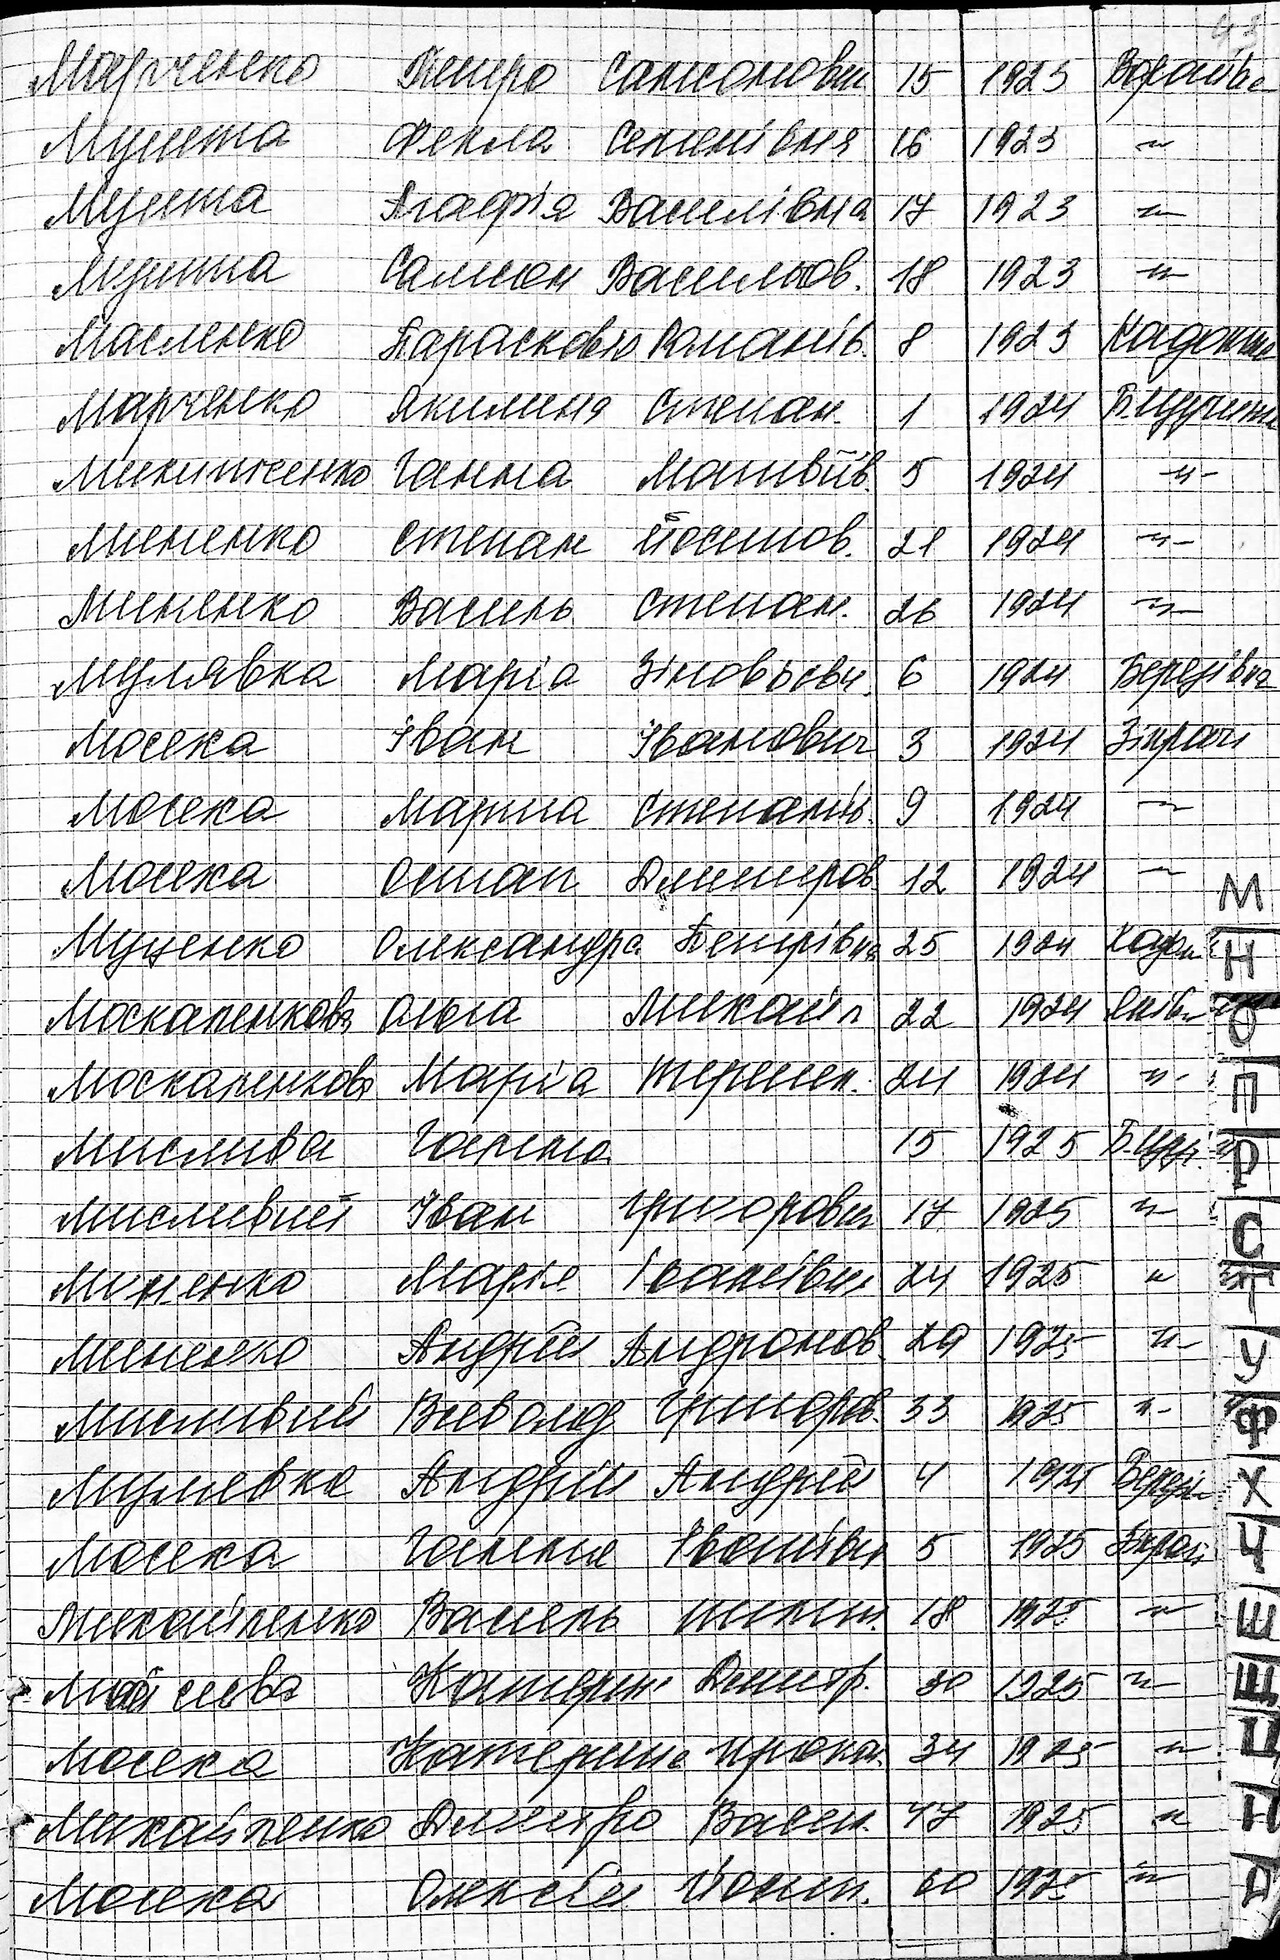 43
Марченко Петро Самсонович 15 1923
Мушта Фекла Семенівна 16 1923 -"-
Мушта Агафія Василівна 17 1923 -"-
Мушта Самсон Васильов. 18 1923 -"-
Масленко Парасковія Романів. 8 1923
Марченко Якилина Степан. 1 1924
Микитченко Ганна Матвіїв. 5 1924 -"-
Миненко Степан Йосипов. 21 1924 -"-
Миненко Василь Степан. 26 1924 -"-
Мулявка Марія Зіновьевн. 6 1924 Березівка
Мосека Іван Іванович 3 1924
Мосека Марина Степанів. 9 1924 -"-
Мосека Остап Дмитров. 12 1924 -"-
Муценко Олександра Петрівна 25 1924
Москаленкова Ольга Михайл 22 1924
Москаленкова Марія Терешк. 24 1924 -"-
Мислива Ганна 15 1925
Мисливий Іван Григорович 17 1925 -"-
Миненко Марія Іванівна 24 1925 -"-
Миненко Андрій Андронов. 29 1925 -"-
Мисливий Всеволод Григоров. 33 1925 -"-
Мулявка Андрій Андрій 4 1925 Березів
Мосека Ганна Іванівна 5 1925
Михайленко Василь 18 1925 -"-
Мойсеєва Катерин Дмитр. 30 1925 -"-
Мосека Катерина Прокоп. 34 1925 -"-
Михайленко Дмитро Васил. 47 1925 -"-
Мосека Олексій Йосип. 60 1925 -"-
М
Н
О
П
Р
С
Т
У
Ф
Х
Ч
Ш
Щ
Ц